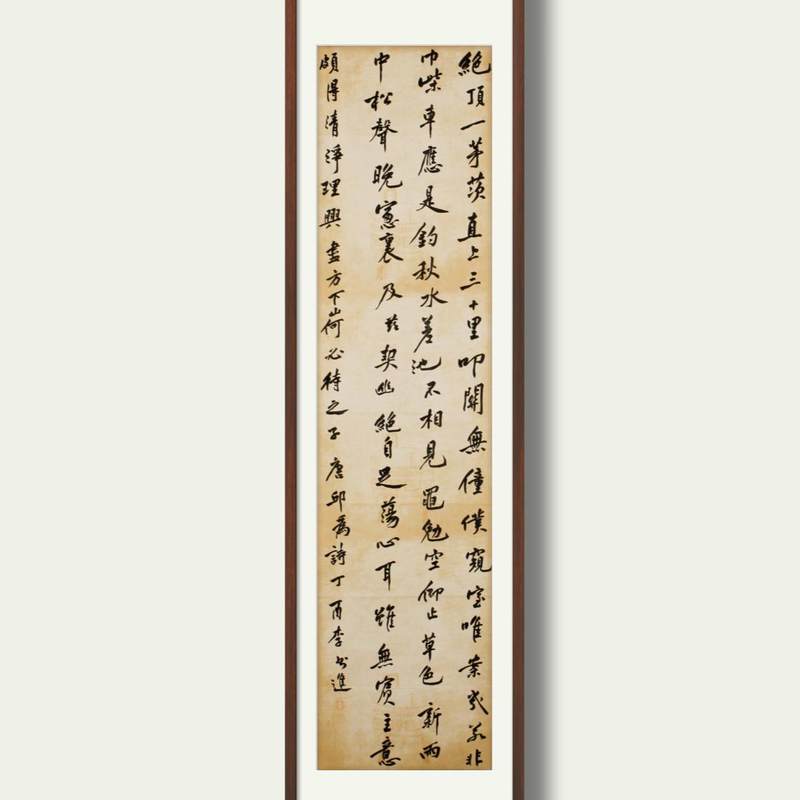 絕頂一茅茨直上三十里叩關無僮僕窺室唯案幾若非
巾柴車應是釣秋水差池不相見黽勉空仰止草色新雨
中松聲晚窻裏及茲契幽絕自足蕩心耳雖無賓主意
頗得清淨理興盡方下山何必待之子唐邱為詩丁酉李书進